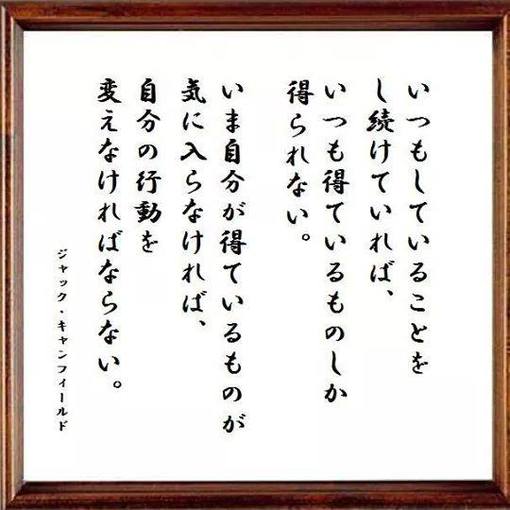 いつもしていることを
し続けていれば、
いつも得ているものしか
得られない。
いま自分が得ているものが
気に入らなければ、
自分の行動を
変えなければならない。
ジャック・キャンフィールド